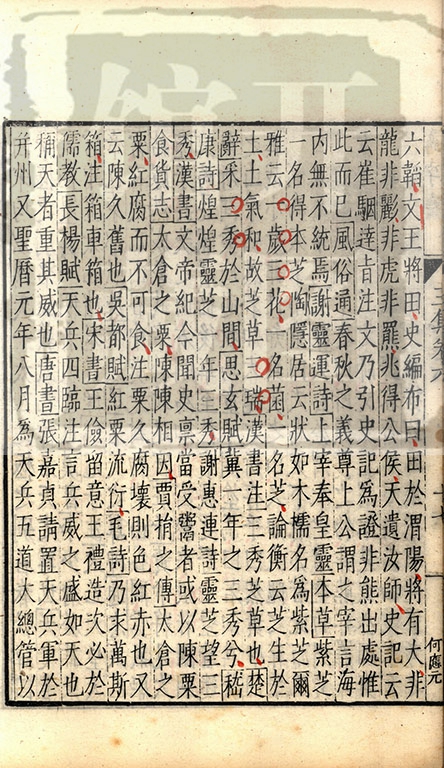 六韜文王將田史編布曰田於渭陽將有大非
龍非彲非虎非羆兆得公侯天遺汝師史記云
云崔駰達旨注文乃引史記為證非熊出處惟
此而已風俗通春秋之義尊上公謂之宰言海
內無不統焉謝靈運詩上宰奉皇靈本草紫芝
一名得本芝陶隱居云狀如木檽名為紫芝爾
雅云一歲三花一名茵一名芝論衡云芝生於
土土氣和故芝草三瑞漢書注三秀芝草也楚
辭采三秀於山間思玄賦冀一年之三秀兮嵇
康詩煌煌靈芝一年三秀謝惠連詩靈芝望三
秀漢書文帝紀今聞吏稟當受鬻者或以陳粟
食貨志太倉之粟陳陳相因賈捐之傳太倉之
粟紅腐而不可食注粟久腐壞則色紅赤也又
云陳久舊也吳都賦紅粟流衍毛詩乃求萬斯
箱注箱車箱也宋書王儉留意王禮造次必於
儒教長楊賦天兵四臨注言兵威之盛如天也
稱天者重其威也唐書張嘉貞請置天兵軍於
并州又聖曆元年八月為天兵五道大總管以
何應元